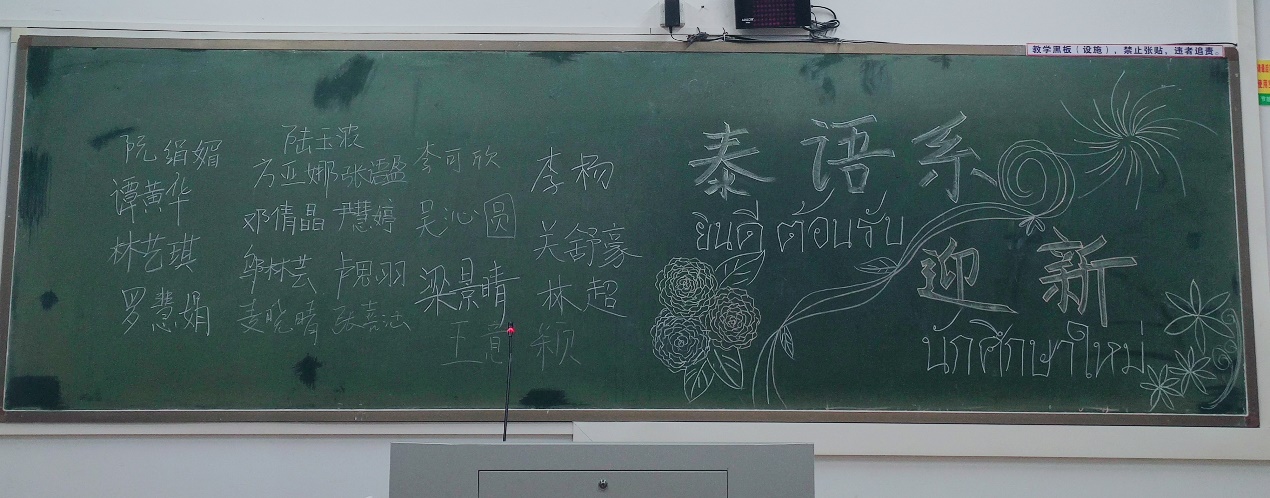 教学黑板（设施），禁止张贴，违者追责。
陆玉波
阮绢媚
方亚娜 张潆盈
李可欣
李杨
谭黄华
邓倩晶 尹慧婷
吴沁圆
关舒豪
林艺琪
牟林芸 卢思羽
梁景晴
林超
罗慧娟
姜晓晴
王意颖
泰语系
ยินดีต้อนรับ
迎新
นักศึกษาใหม่